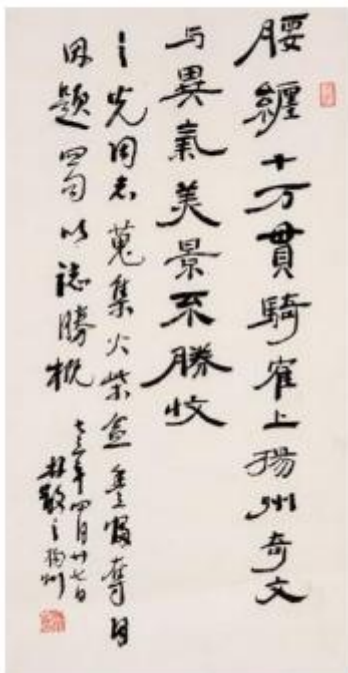 腰纏十万貫騎隺上揚州奇文
与異氣美景不勝收
之光同志蒐集火柴盒奪目
因題四句以誌勝概
七三年四月廿七日
林散之揚州